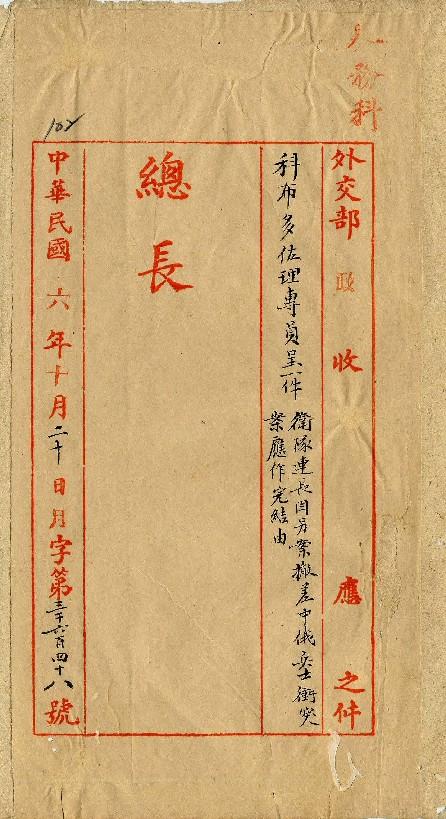 人務科
外交部 政 收 應 之件
科布多佐理專員呈一件 衛隊連長因另案撤差中俄兵士衝突
案應作完結由
總長
中華民國 六 年 十 月 二十 日 月 字第三千六百四十八號
102